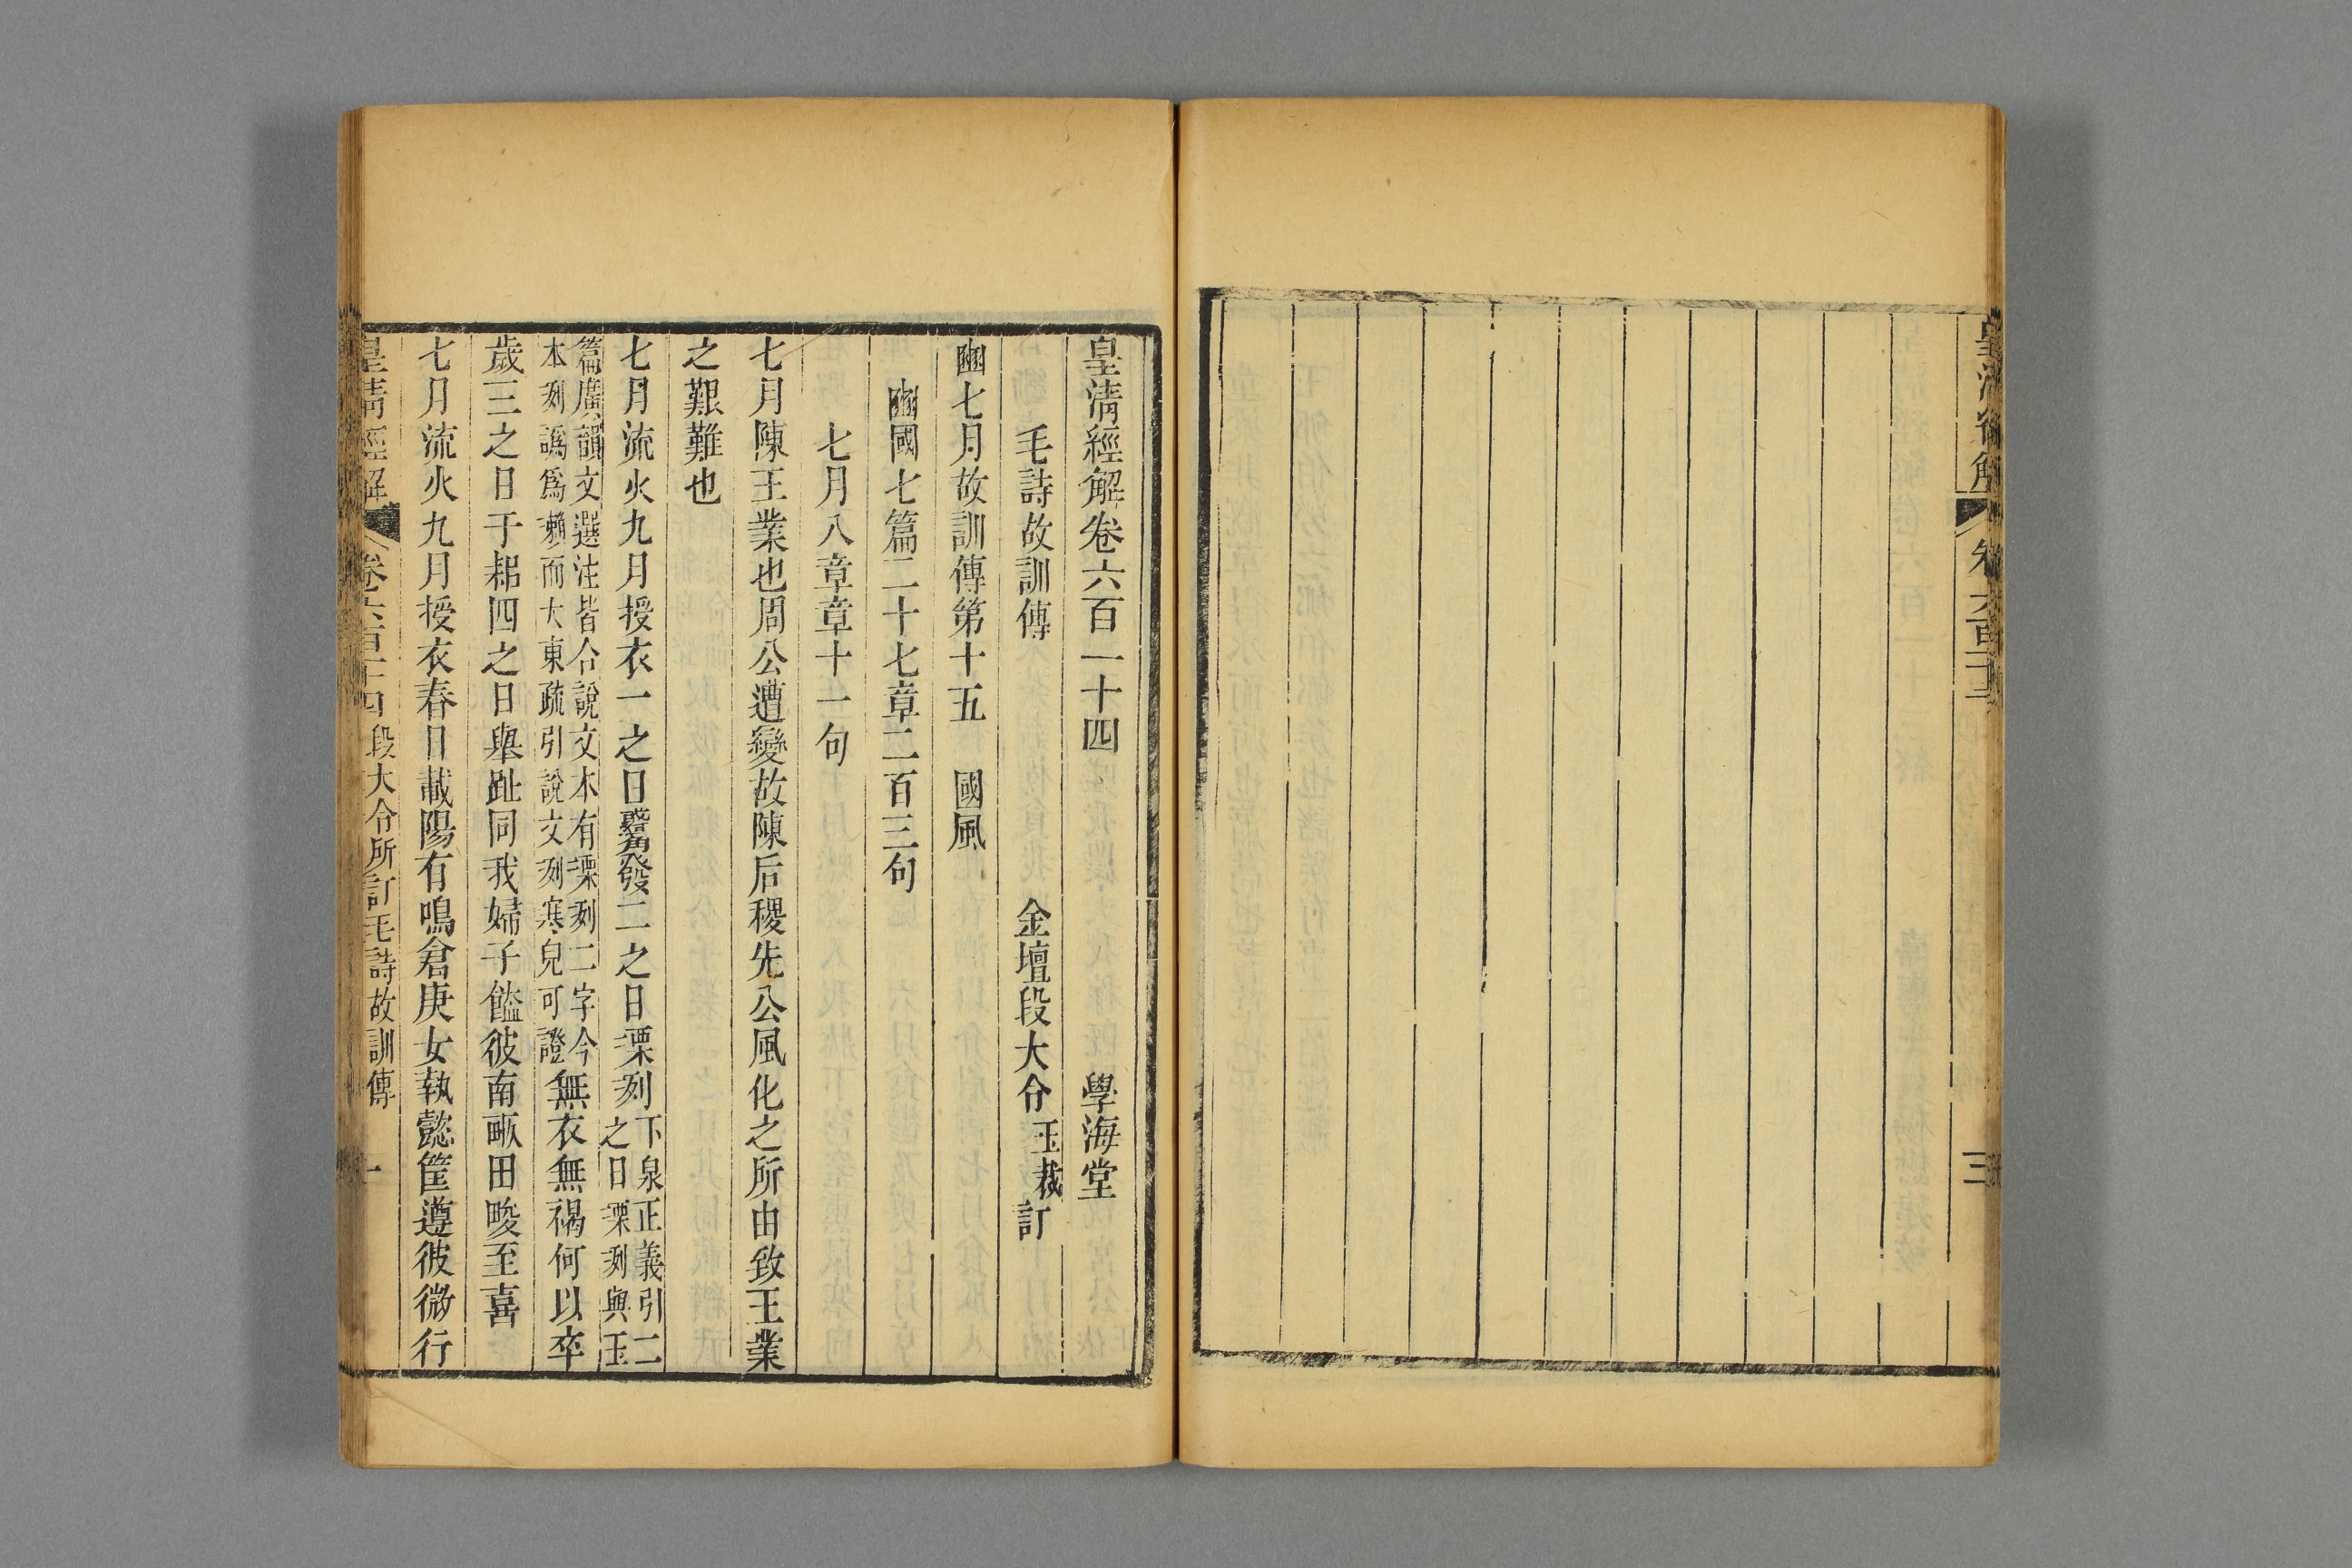 皇清經解 卷六百一十三 三
皇清經解卷六百一十四 學海堂
毛詩故訓傳 金壇段大令玉裁訂
豳七月故訓傳第十五 國風
豳國七篇二十七章二百三句
七月八章章十一句
七月陳王業也周公遭變故陳后稷先公風化之所由致王業
之艱難也
七月流火九月授衣一之日觱發二之日凓冽下泉正義引二
之日凓冽與玉
篇廣韻文選注皆合說文本有凓冽二字今
本冽譌爲瀨而大東疏引說文冽寒皃可證無衣無褐何以卒
歲三之日于耜四之日舉趾同我婦子饁彼南畝田畯至喜
七月流火九月授衣春日載陽有鳴倉庚女執懿筐遵彼微行
皇清經解 卷六百一十四 段大令所訂毛詩故訓傳 一